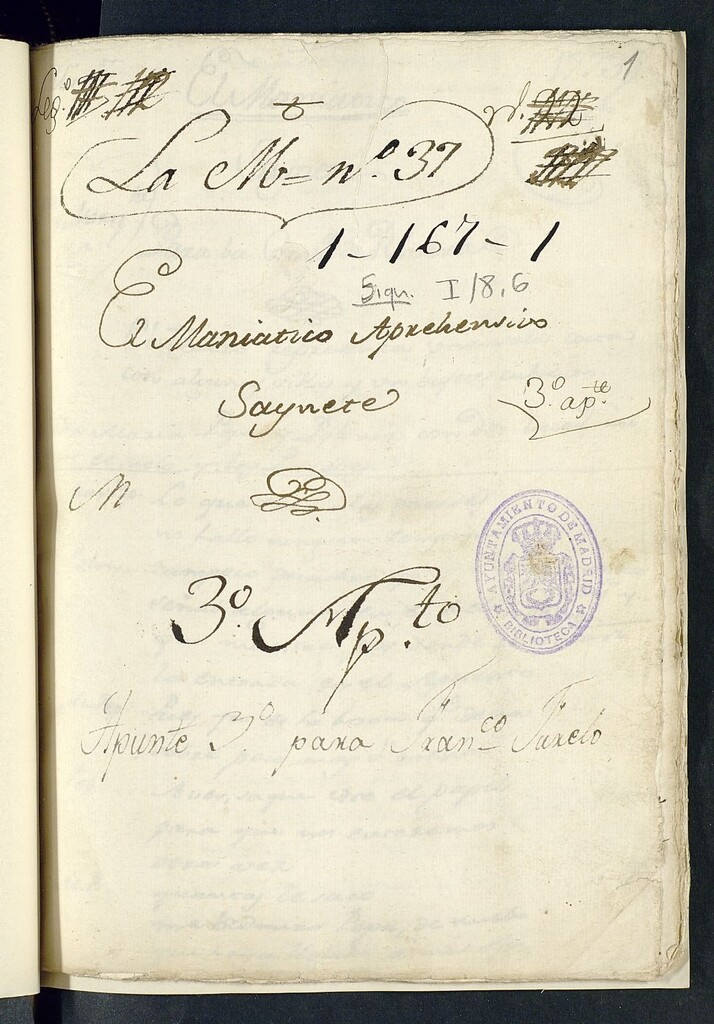 1
Leg.º
La M= nº. 37
1-167-1
Sign. I/8,6
El Maniatico Aprehensivo
Saynete
3º ap.te
M
AYUNTAMIENTO DE MADRID
BIBLIOTECA
3º Ap.to
Apunte 3º para Fran.co